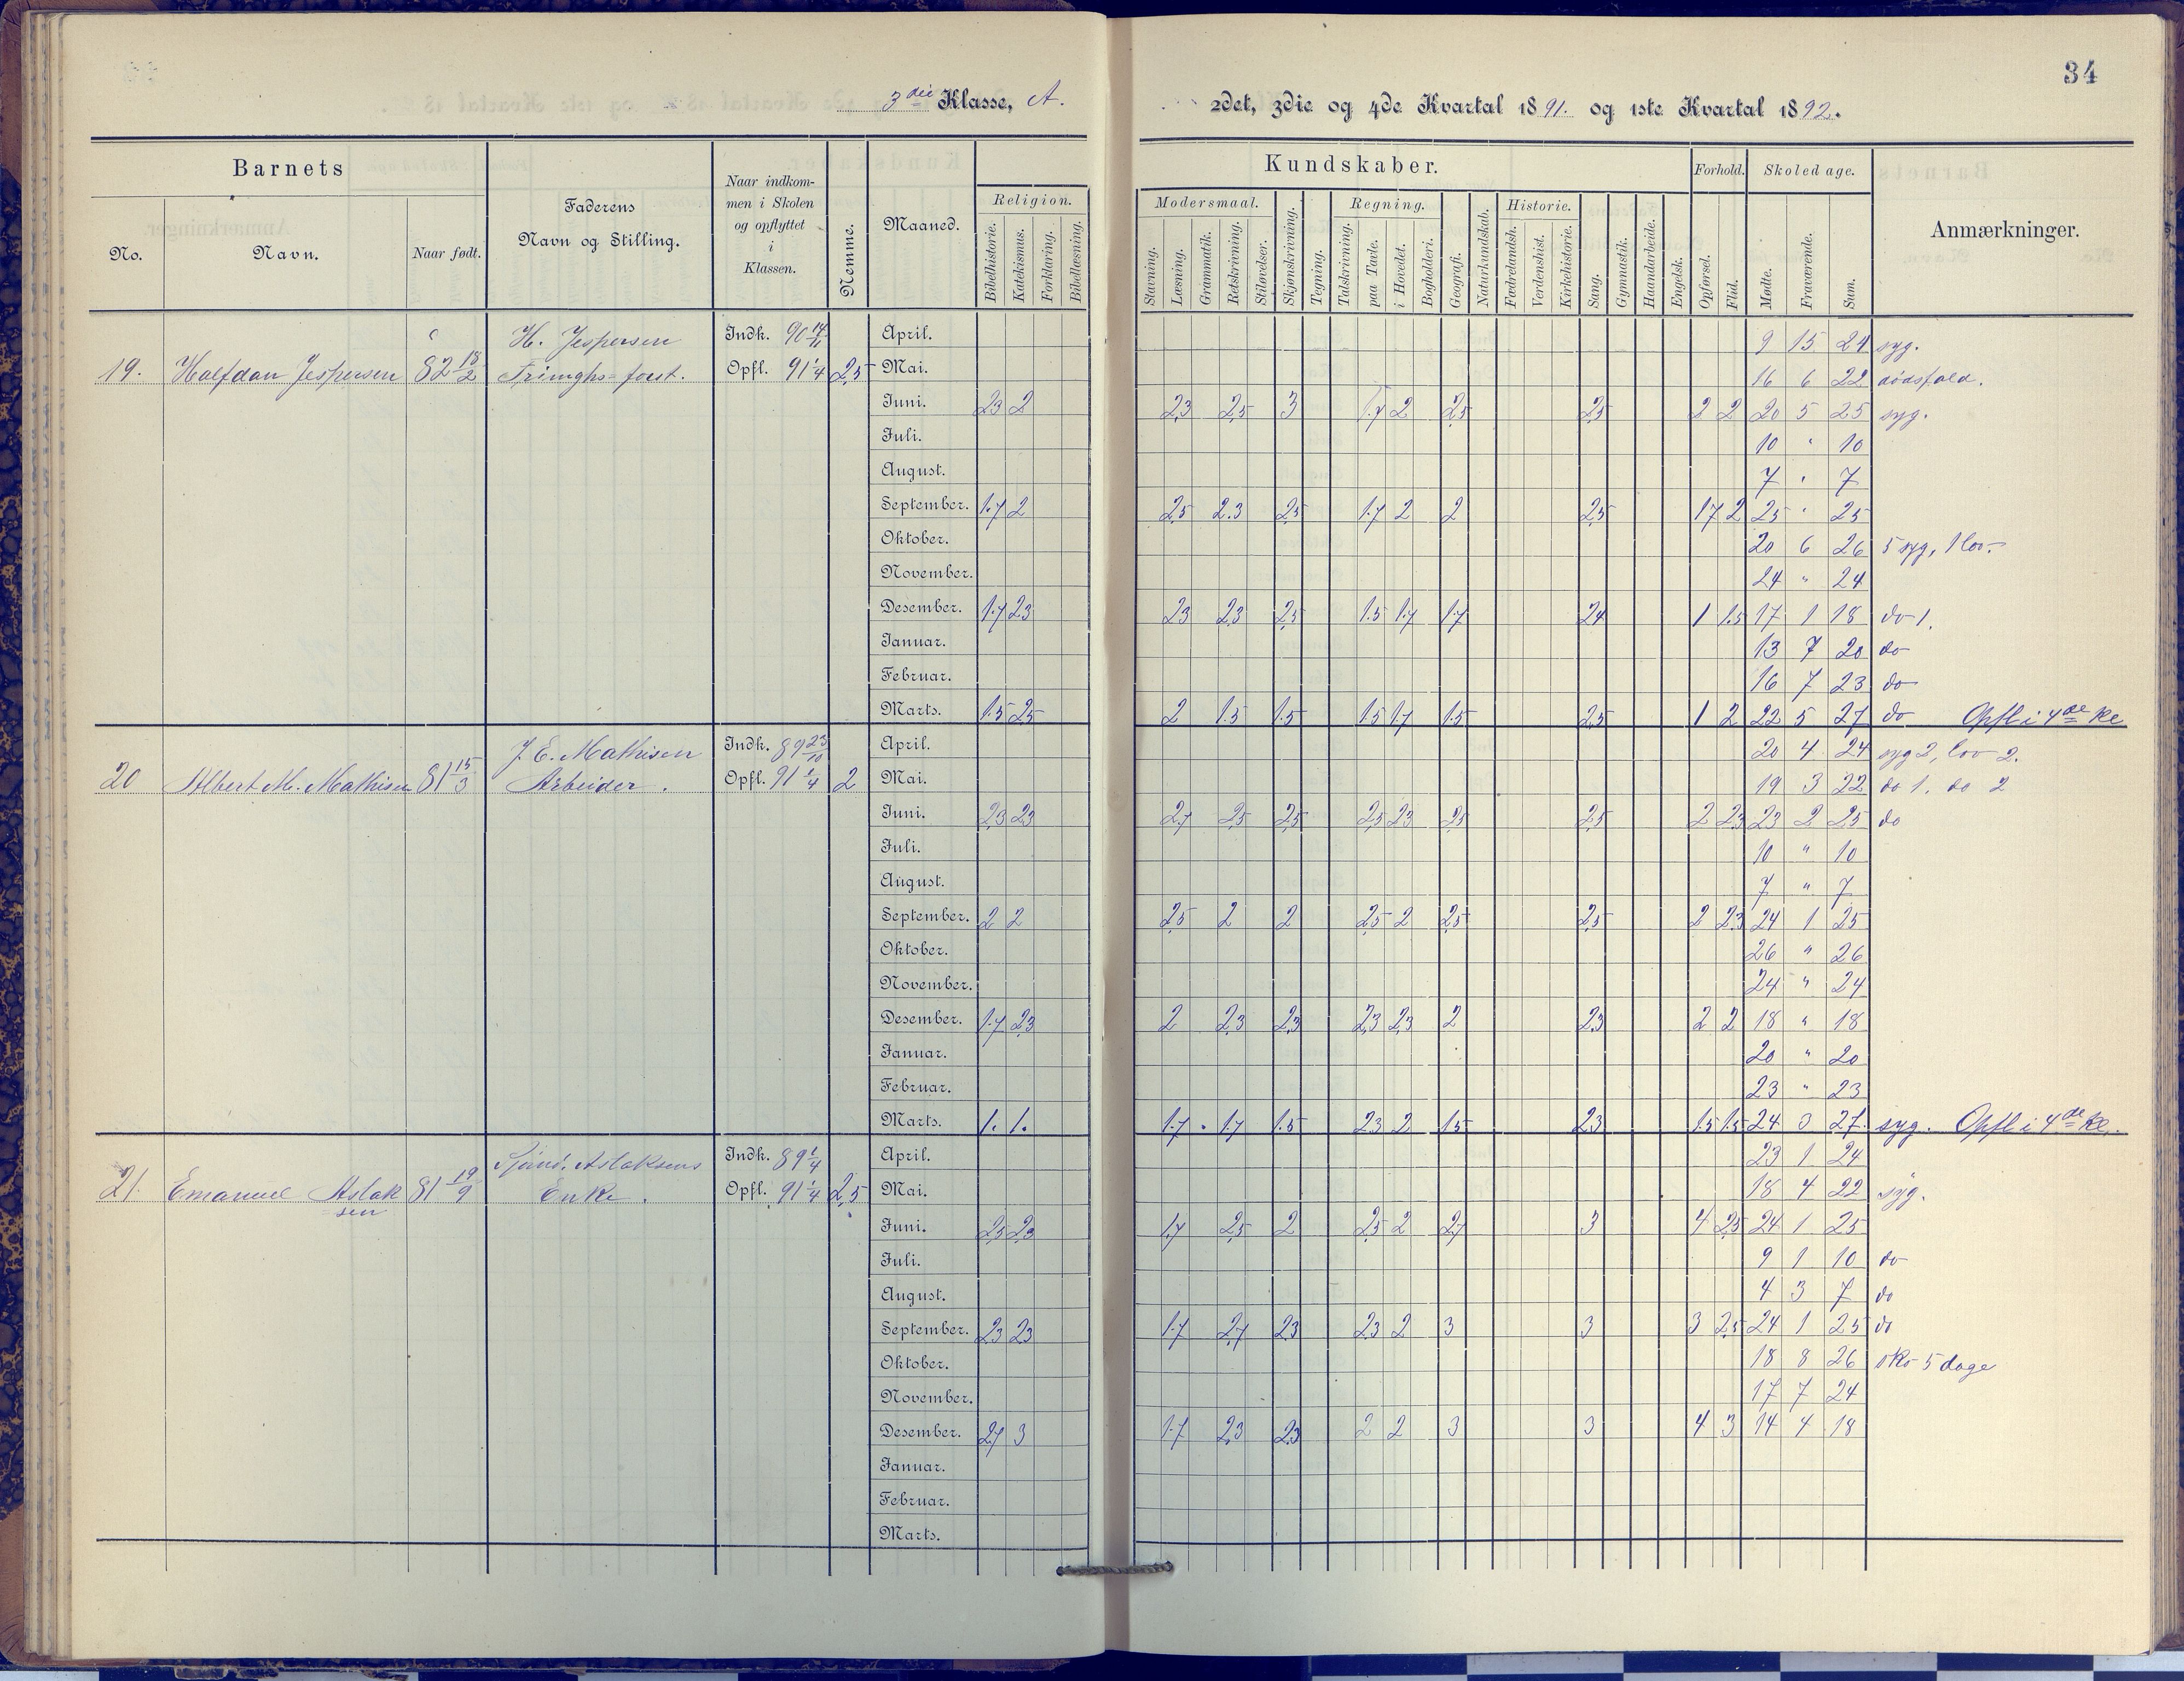 34
3die Klasse, A.
2det, 3die og 4de Kvartal 1891. og 1ste Kvartal 1892.
Barnets
No.
Navn.
Naar født.
Faderens
Navn og Stilling.
Naar indkom-
men i Skolen
og opflyttet
i
Klassen.
Nemme.
Maaned.
Kundskaber.
Religion.
Bibelhistorie.
Katekismus.
Forklaring.
Bibellæsning.
Modersmaal.
Stavning.
Læsning.
Grammatik.
Retskrivning.
Stiløvelser.
Skjønskrivning.
Tegning.
Regning.
Talskrivning.
paa Tavle.
i Hovedet.
Bogholderi.
Geografi.
Naturkundskab.
Historie.
Fædrelandsh.
Verdenshist.
Kirkehistorie.
Sang.
Gymnastik.
Haandarbeide.
Engelsk.
Forhold.
Opførsel.
Flid.
Skoledage.
Mødte.
Fraværende.
Sum.
Anmærkninger.
19. Halfdan Jespersen 82 18/2 H. Jespersen
Indk. 90 Opfl. 91 1/4 2,5
April. 9 15 24 syg.
Mai. 16 6 22 dødsfald.
Juni. 2,3 2 2,3 2,5 3 1.7 2 2,5 2,5 2 2 20 5 25 syg.
Juli. 10 " 10
August. 7 " 7
September. 1.7 2 2,5 2.3 2,5 1.7 2 2 2,5 1.7 2 25 " 25
Oktober. 20 6 26 5 syg, 1 lov.
November. 24 " 24
Desember. 1.7 2,3 2,3 2,3 2,5 1.5 1.7 1.7 2,4 1 1.5 17 1 18 do 1.
Januar. 13 7 20 do
Februar. 16 7 23 do
Marts. 1.5 2,5 2 1.5 1.5 1.5 1.7 1.5 2,5 1 2 22 5 27 do Opfl i 4de Kl
20 Albert M. Mathisen 81 15/3 J. E. Mathisen
Arbeider.
Indk. 89 23/10 Opfl. 91 1/4 2
April. 20 4 24 syg 2, lov 2.
Mai. 19 3 22 do 1. do 2
Juni. 2,3 2,3 2,7 2,5 2,5 2,5 2,3 2,5 2,5 2 2,3 23 2 25 do
Juli. 10 " 10
August. 7 " 7
September. 2 2 2,5 2 2 2,5 2 2,5 2,5 2 2,3 24 1 25
Oktober. 26 " 26
November. 24 " 24
Desember. 1.7 2,3 2 2,3 2,3 2,3 2,3 2 2,3 2 2 18 " 18
Januar. 20 " 20
Februar. 23 " 23
Marts. 1. 1. 1.7 1.7 1.5 2,3 2 1.5 2,3 1.5 1.5 24 3 27. syg. Opfl i 4de Kl.
21. Emanuel Aslak
sen
81 19/9 Aslaksens
Enke.
Indk. 89 1/4 Opfl. 91 1/4 2,5
April. 23 1 24
Mai. 18 4 22 syg.
Juni. 2,5 2,3 1,7 2,5 2 2,5 2 2,7 3 4 2,5 24 1 25
Juli. 9 1 10 do
August. 4 3 7 do
September. 2,3 2,3 1.7 2,7 2,3 2,3 2 3 3 3 2,5 24 1 25 do
Oktober. 18 8 26 5 dage
November. 17 7 24
Desember. 2,7 3 1.7 2,3 2,3 2 2 3 3 4 3 14 4 18
Januar.
Februar.
Marts.